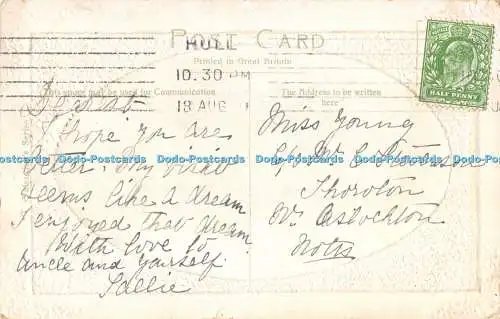 POST CARD
HULL
Printed in Great Britain
10.30 PM
18 AUG
This space may be used for Communication
The Address to be written
here
HALF PENNY
I hope you are
better. My visit
seems like a dream
I enjoyed that dream
With love to
Uncle and yourself.
Sallie
Miss Young
c/o Mr
Thoroton
Nr Aslockton
Notts
Dodo-Postcards Dodo-Postcards Dodo-Postcards Dodo-Postcards